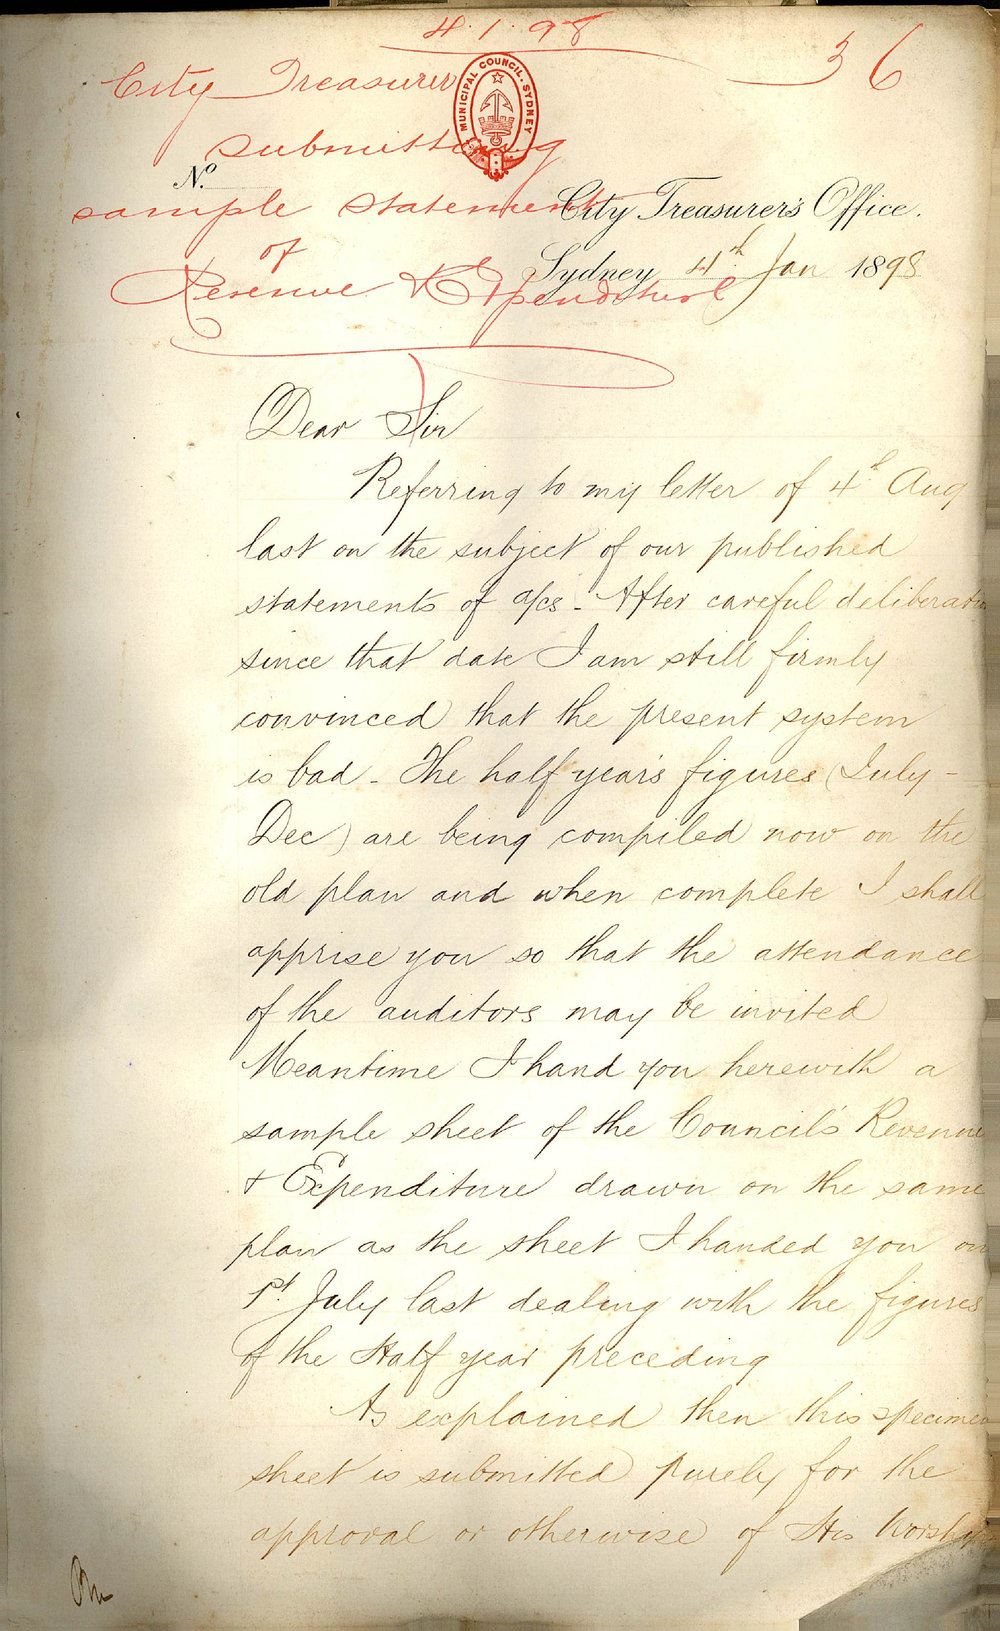 4.1.98
36
City Treasurer
MUNICIPAL COUNCIL. SYDNEY
submitting
No.
sample statement
City Treasurer's Office.
of
Sydney 4th Jan 1898
Revenue & Expenditure
Dear Sir
Referring to my letter of 4th Aug
last on the subject of our published
statements of a/cs - After careful deliberation
since that date I am still firmly
convinced that the present system
is bad - The half year's figures (July -
Dec) are being compiled now on the
old plan and when complete I shall
apprise you so that the attendance
of the auditors may be invited
Meantime I hand you herewith a
sample sheet of the Council's Revenue
& Expenditure drawn on the same
plan as the sheet I handed you on
1st July last dealing with the figures
of the Half year preceding
As explained then this specimen
sheet is submitted purely for the
approval or otherwise of His Worship